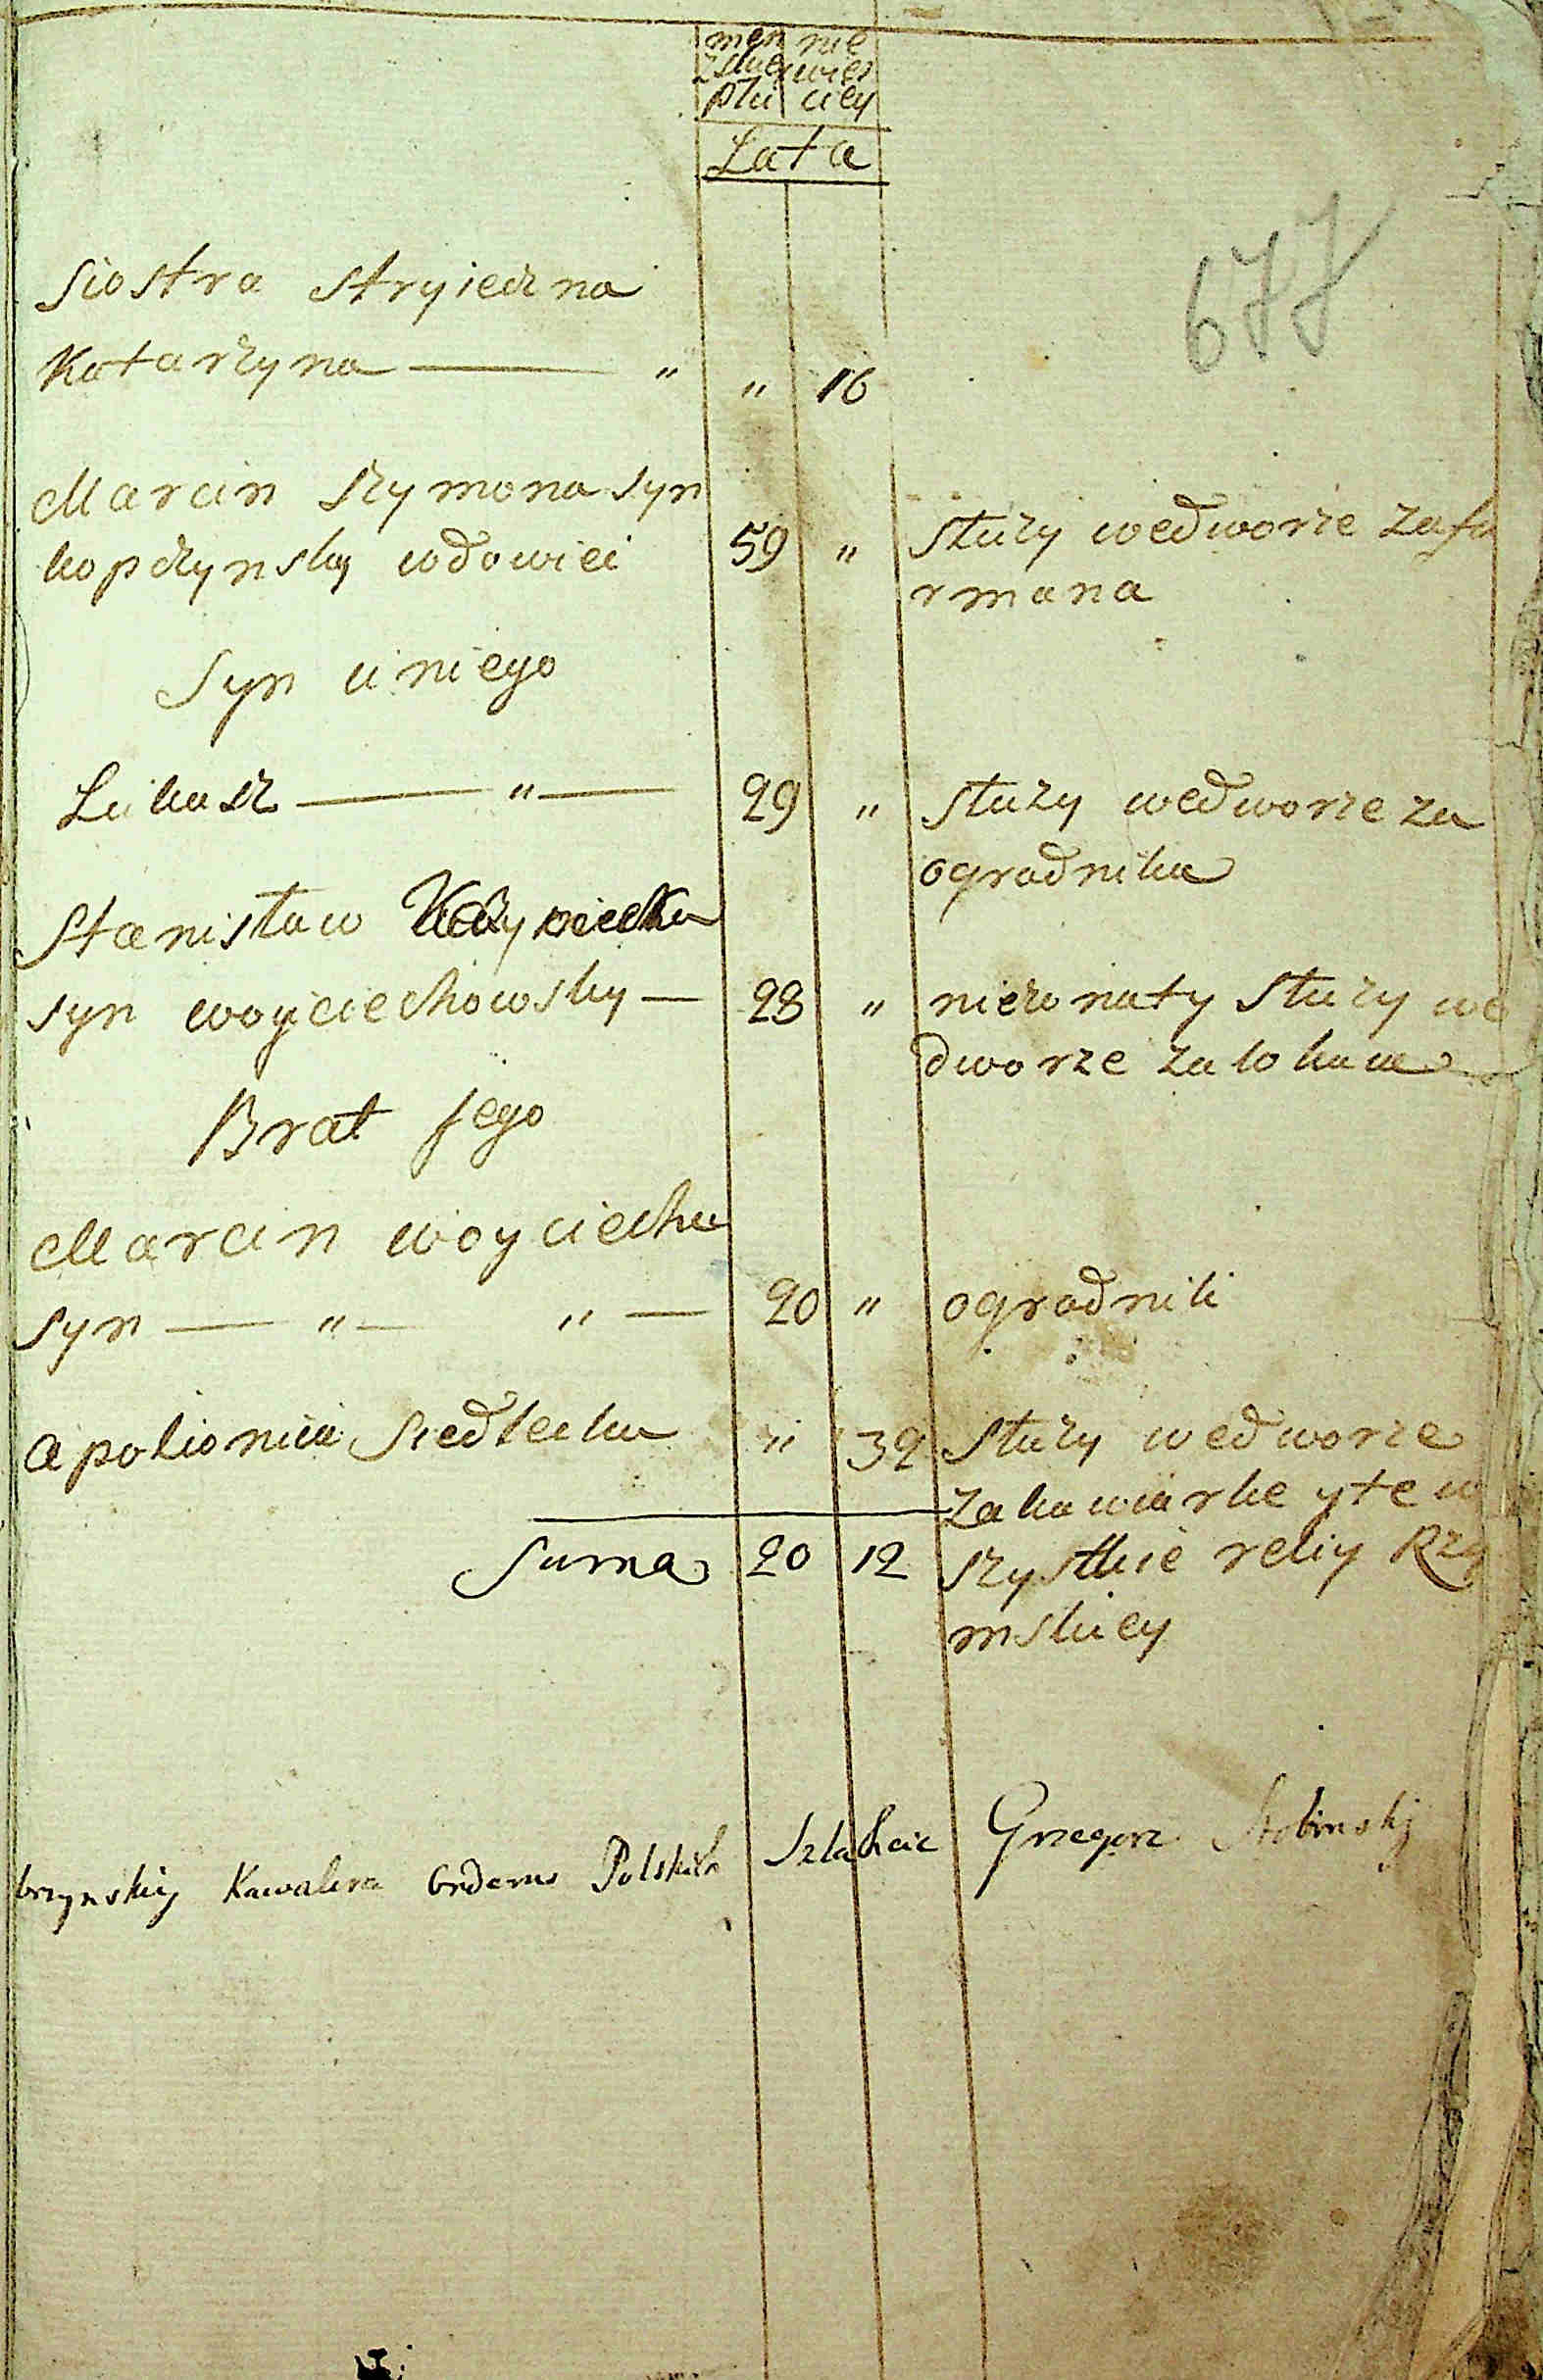 męn nie
zskiey wies
płci ciey
Lata
677
Siostra Stryieczna
Katarzyna — " " 16
Marcin Szymona syn
kopczynsky wdowiec 59 " Służy wedworze zafu
rmana
Syn u niego
Lukasz — " — 29 " Służy wedworze za
ogrodnika
Stanisław
syn woyciechowsky — 28 " nieżonaty Służy we
dworze za lokaia
Brat Jego
Marcin woyciecha
syn — " — " — 20 " ogrodnik
apolionia Siedlecka " 39 Służy wedworze
zakawiarke y te w
Suma 20 12 szystkie reliy Rzy
mskiey
brzynskiy Kawalera Orderow Polskich Szlachcic Grzegorz